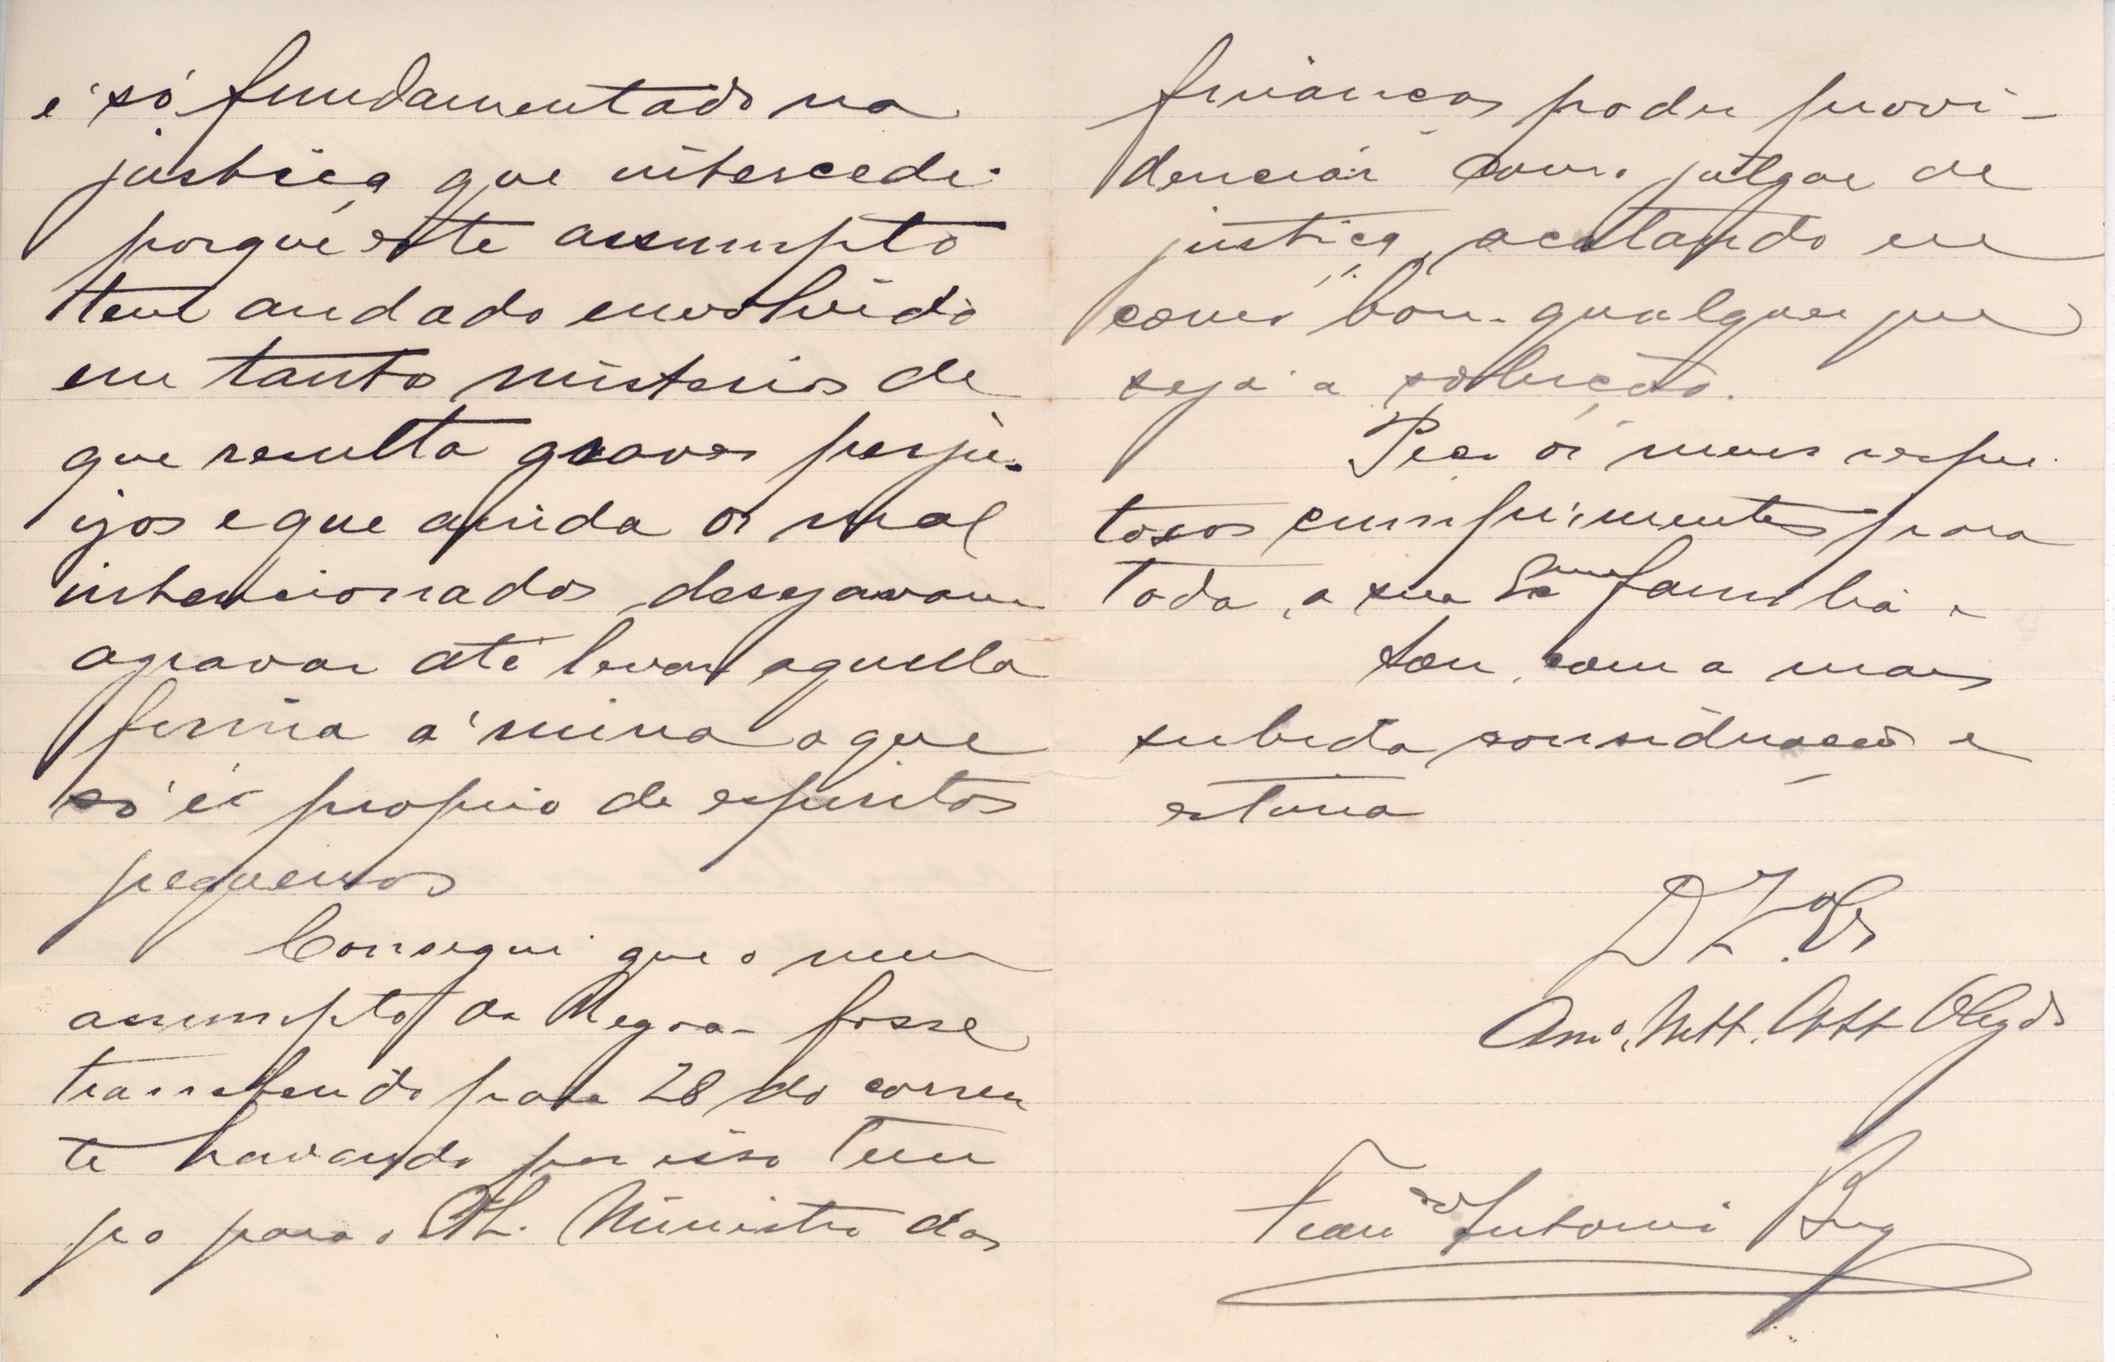 e só fundamentado na
justiça que intercedi
porque este assumpto
tem andado envolvido
em tanto misterios de
que resulta graves perjui-
ijos e que ainda os mal
intencionados desejavam
agravar até levar aquella
firma á ruina o que
só é proprio de espiritos
pequenos
Consegui que o meu
assumpto da Regoa fosse
transferido para 28 do corren
te havendo por isso tem
po para o Ministro das
finanças poder provi-
denciar como julgar de
justiça, acatando eu
como bom qualquer que
seja a solução.
Peço os meus respei
tosos cumprimentos para
toda a sua Exma familia e
Sou, com a mais
subida consideração e
estima
D V. Ex
Amo. Mtt. Att Obrgdo
Franco Antonio